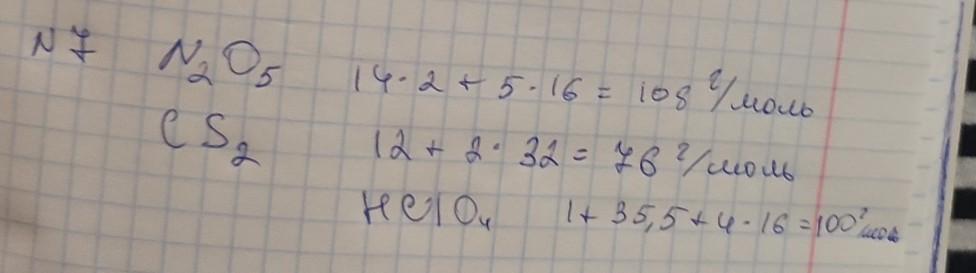 N 7 N₂O₅ 14·2 + 5·16 = 108 г/моль
CS₂ 12 + 2·32 = 76 г/моль
HClO₄ 1 + 35,5 + 4·16 = 100 г/моль